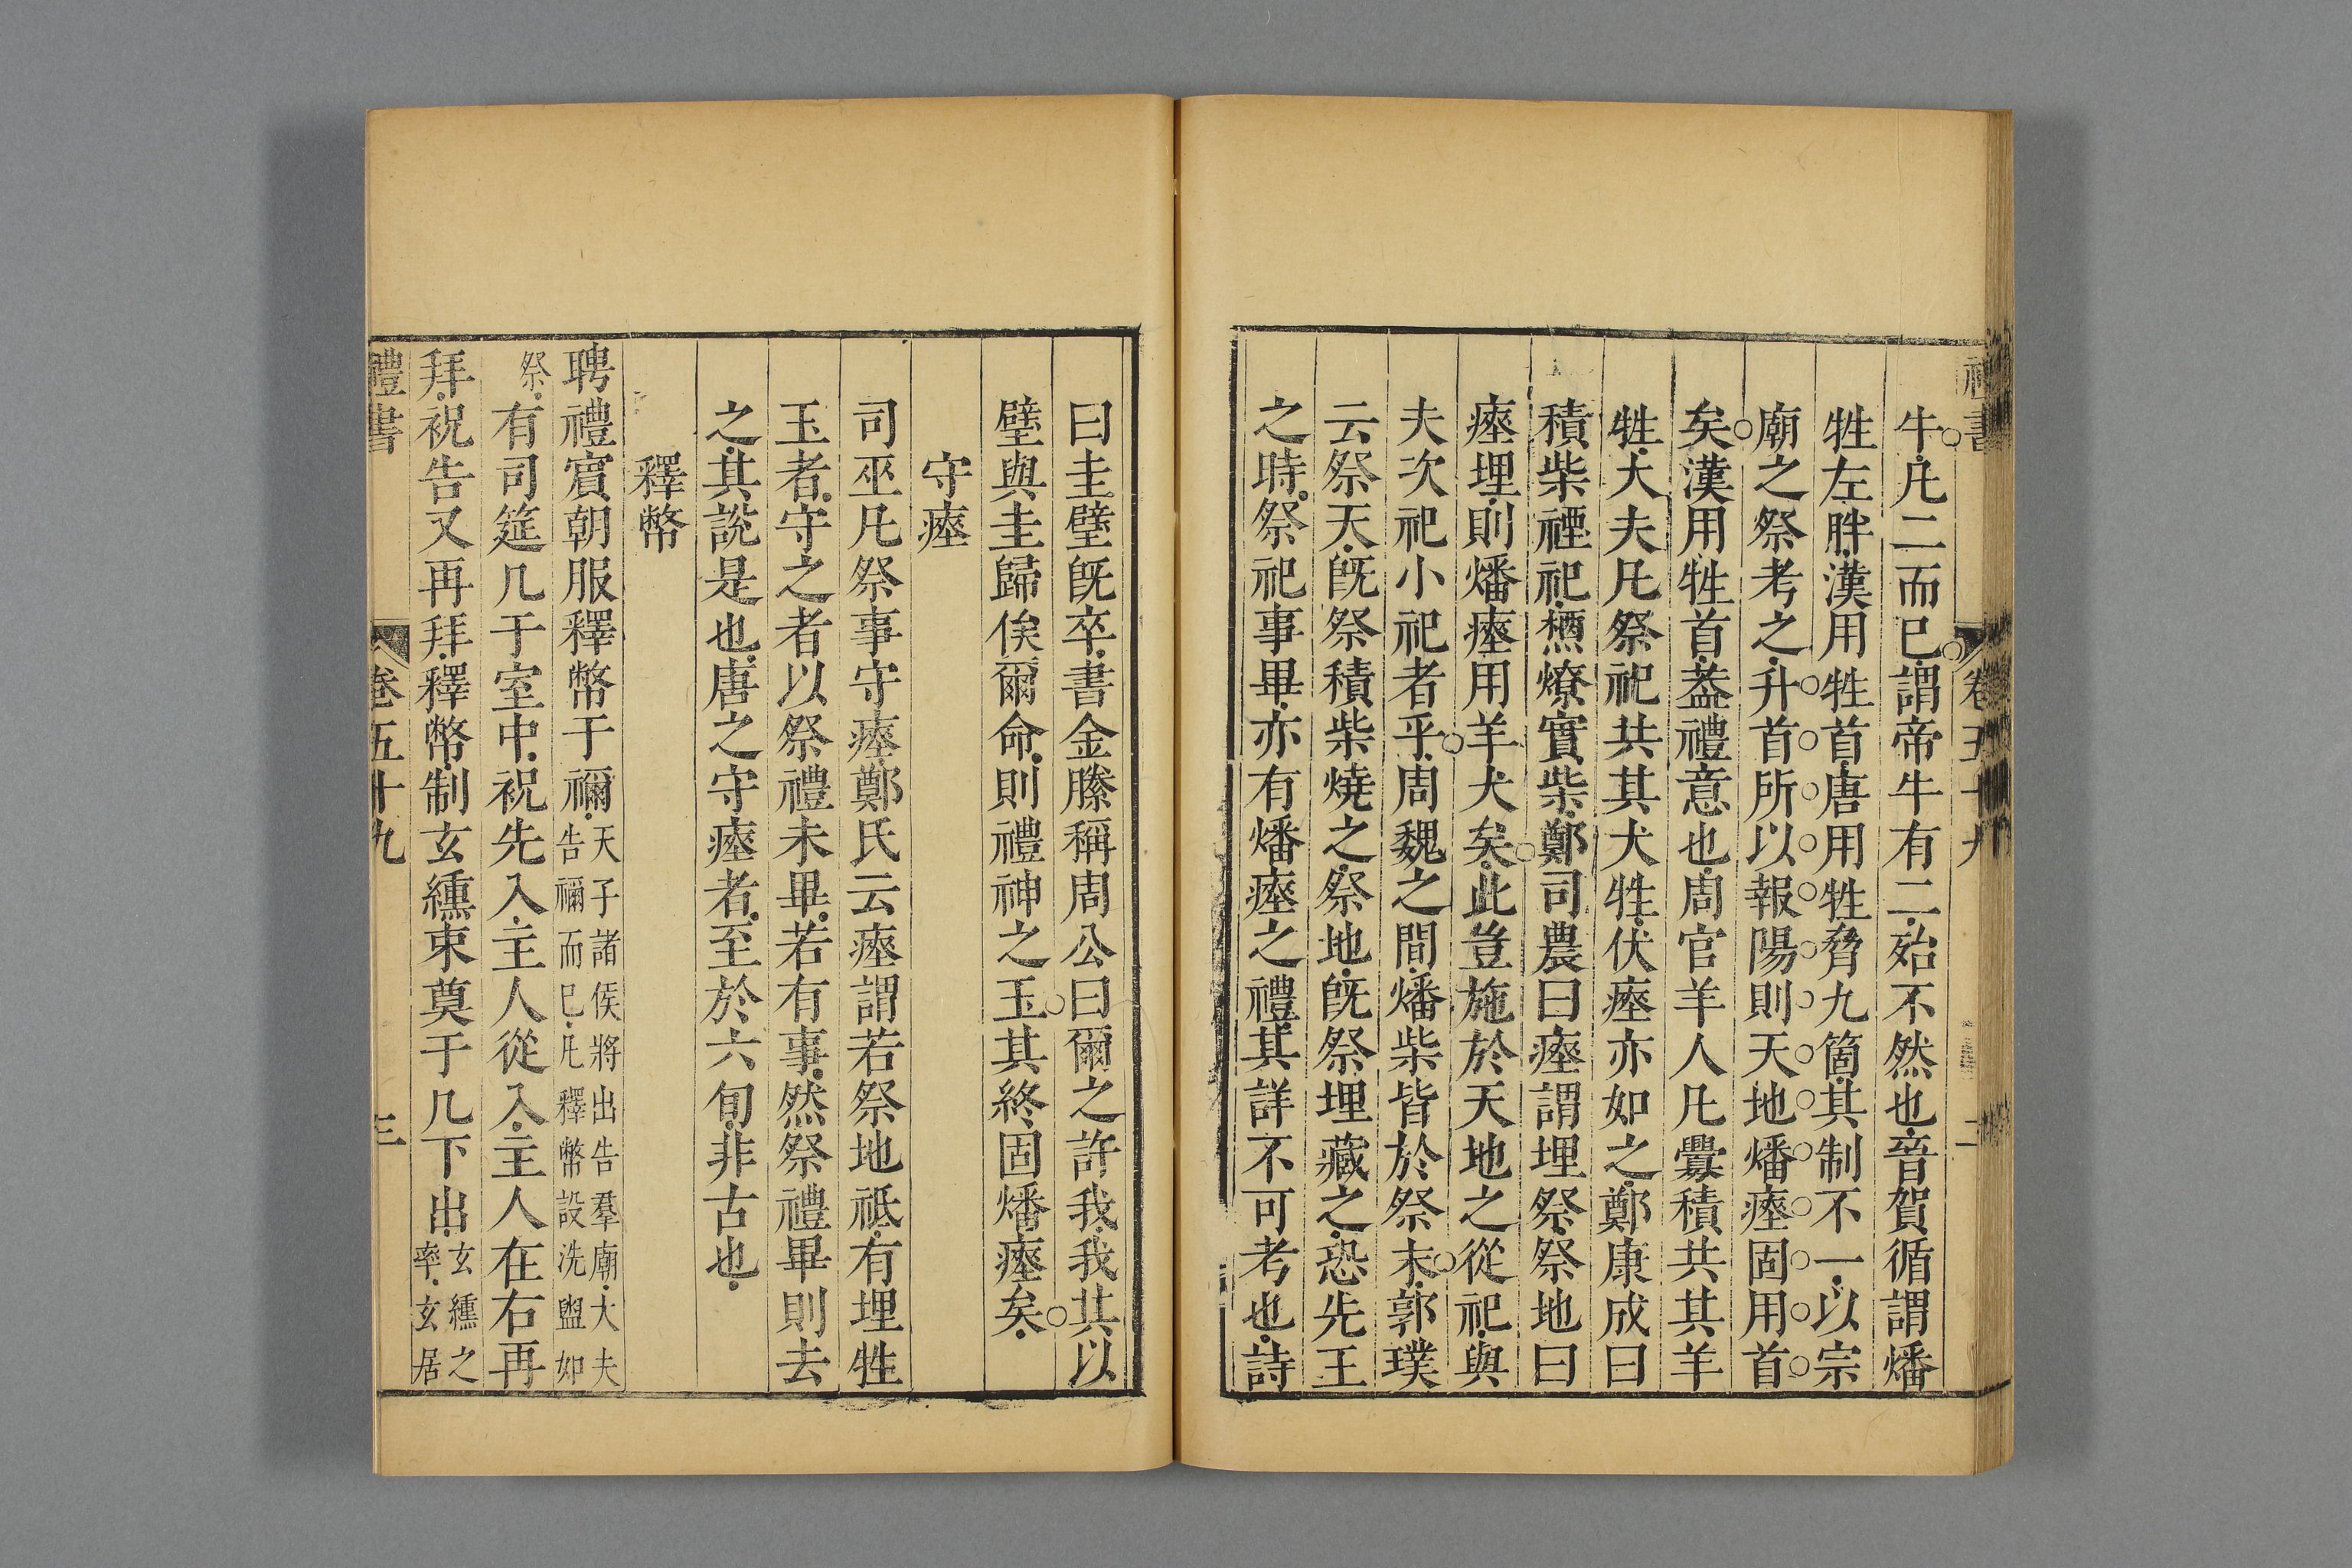 禮書 卷五十九 二
牛凡二而已謂帝牛有二殆不然也晉賀循謂燔
牲左胖漢用牲首唐用牲脅九箇其制不一以宗
廟之祭考之升首所以報陽則天地燔瘞固用首
矣漢用牲首葢禮意也周官羊人凡釁積共其羊
牲犬夫凡祭祀共其犬牲伏瘞亦如之鄭康成曰
積柴禋祀槱燎實柴鄭司農曰瘞謂埋祭祭地曰
瘞埋則燔瘞用羊犬矣此豈施於天地之從祀與
夫次祀小祀者乎周魏之間燔柴皆於祭末郭璞
云祭天旣祭積柴燒之祭地旣祭埋藏之恐先王
之時祭祀事畢亦有燔瘞之禮其詳不可考也詩
曰圭璧旣卒書金縢稱周公曰爾之許我我其以
璧與圭歸俟爾命則禮神之玉其終固燔瘞矣
守瘞
司巫凡祭事守瘞鄭氏云瘞謂若祭地祗有埋牲
玉者守之者以祭禮未畢若有事然祭禮畢則去
之其說是也唐之守瘞者至於六旬非古也
釋幣
聘禮賓朝服釋幣于禰天子諸侯將出告羣廟大夫告禰而已凡釋幣設洗盥如
祭有司筵几于室中祝先入主人從入主人在右再
拜祝告又再拜釋幣制玄纁束奠于几下出玄纁之率玄居
禮書 卷五十九 三